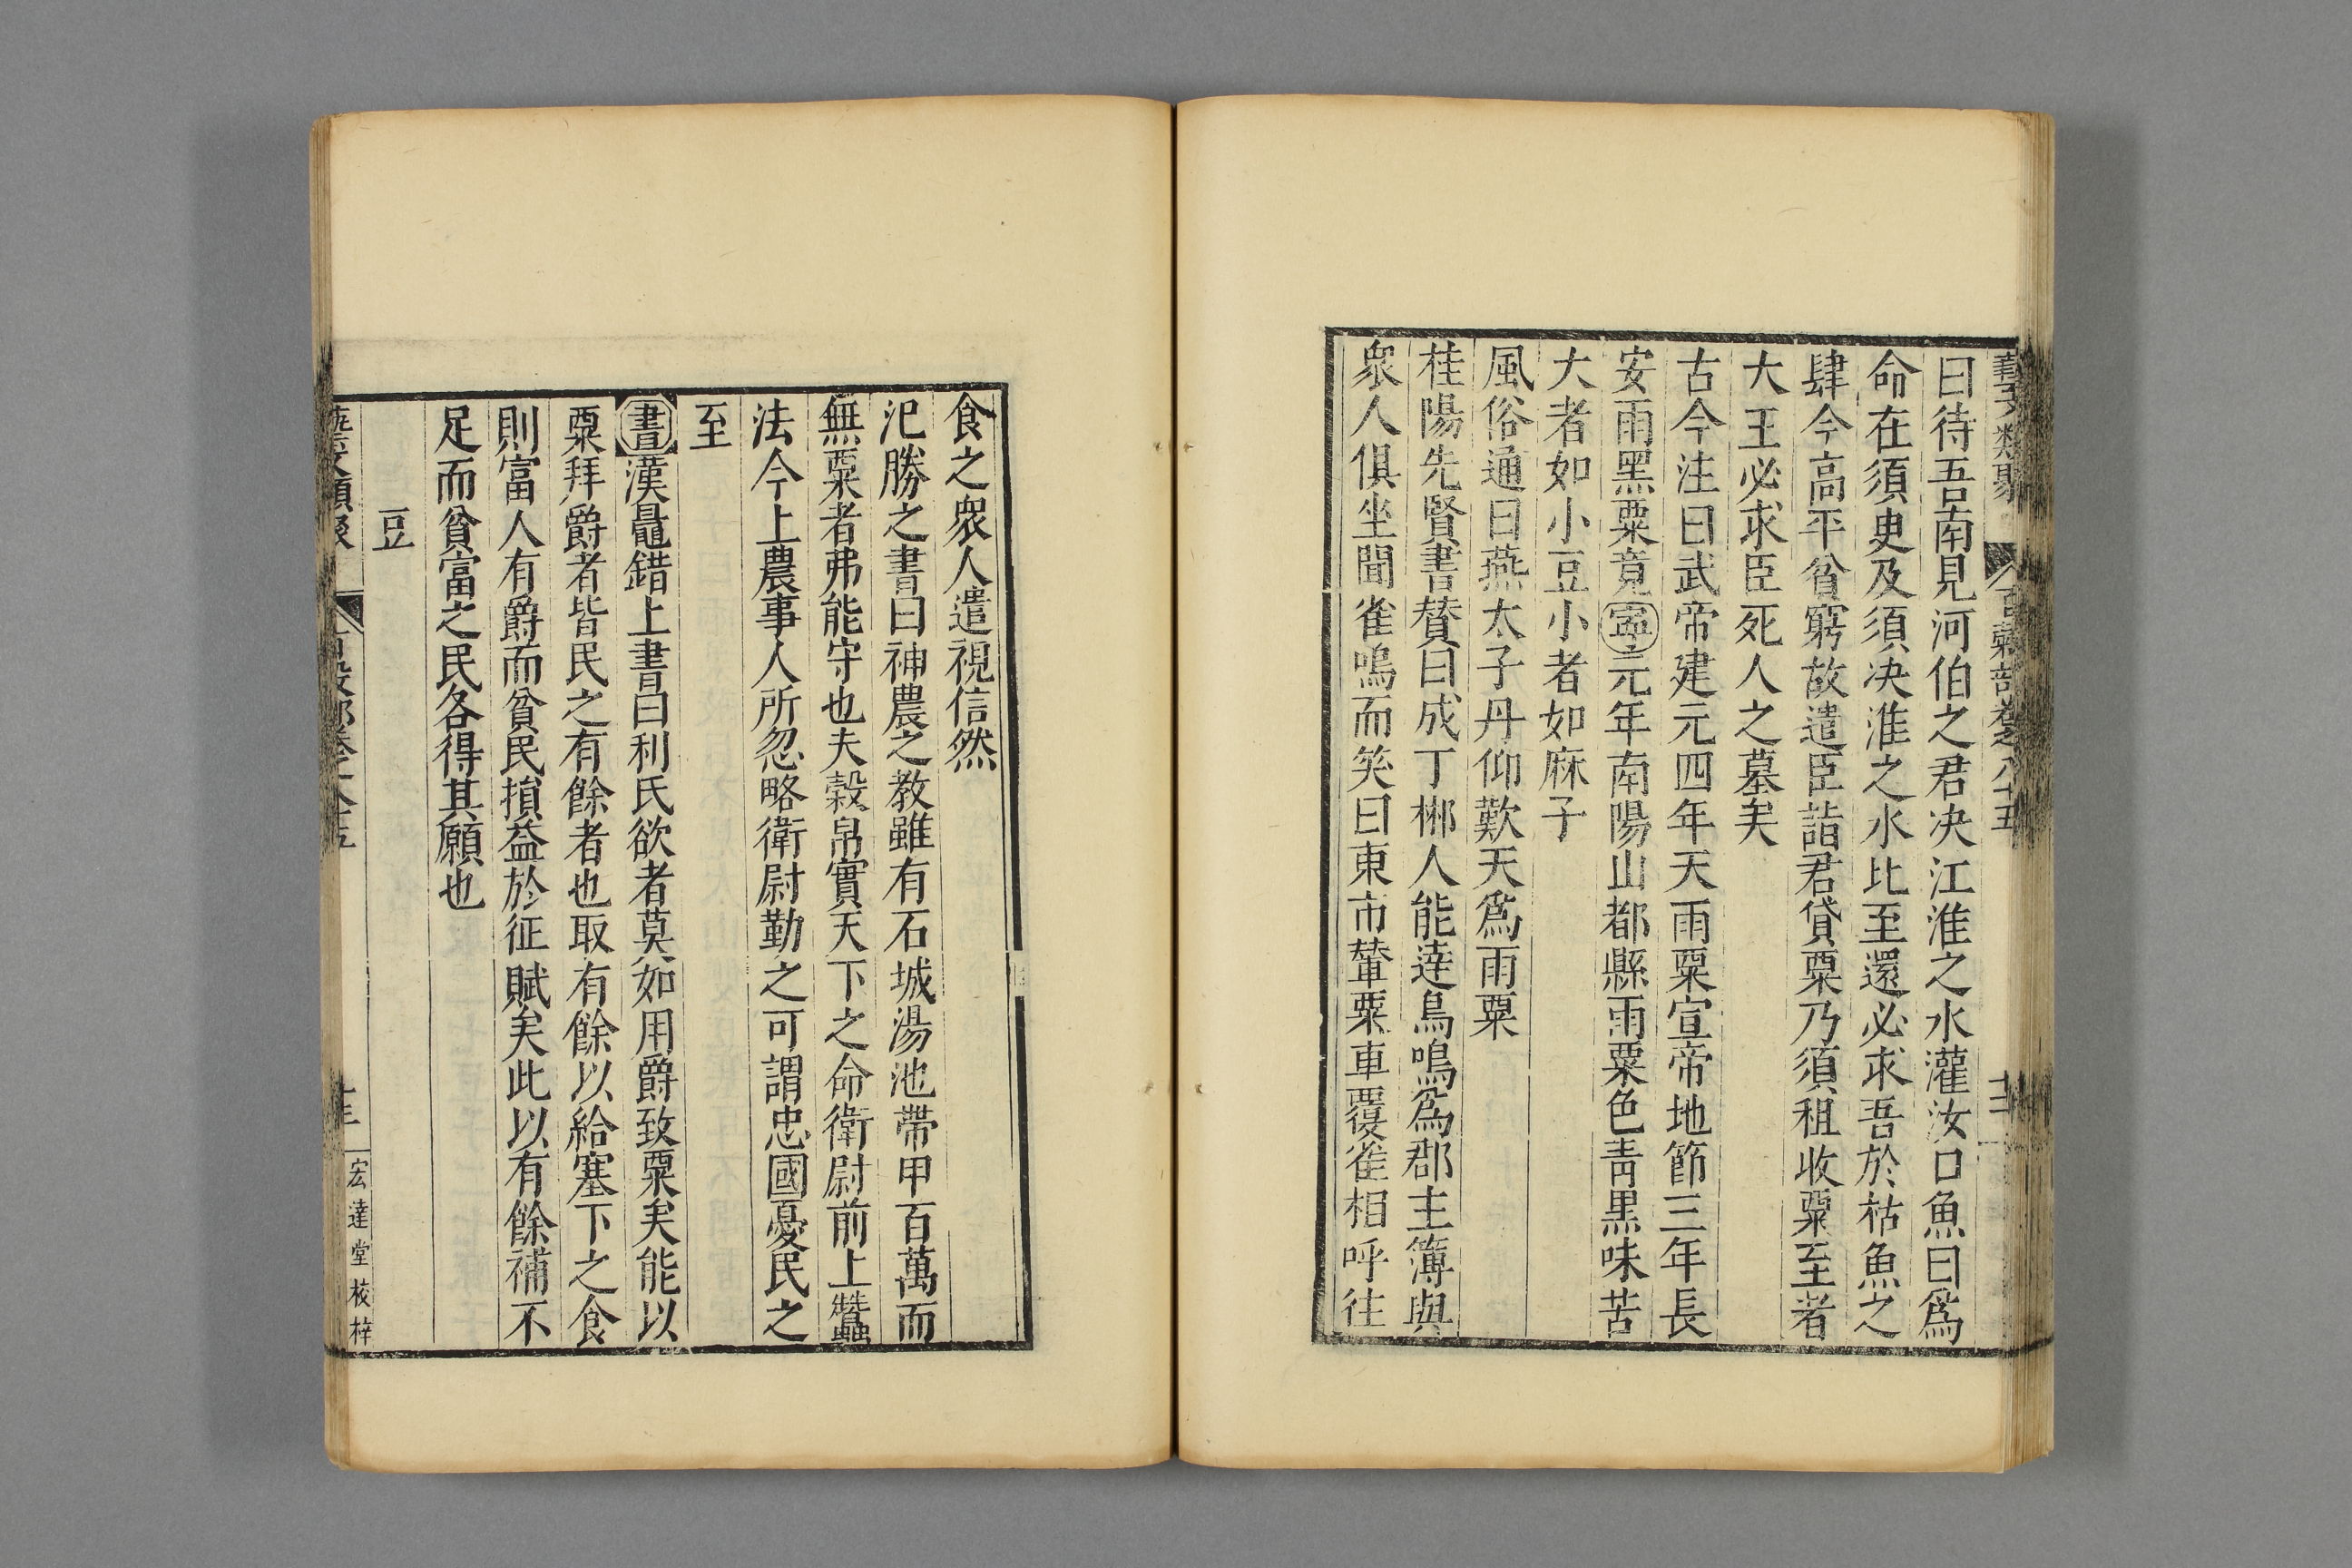 藝文類聚 百穀部卷之八十五 十二
曰待吾南見河伯之君决江淮之水灌汝口魚曰爲
命在須臾及須决淮之水比至還必求吾於枯魚之
肆今高平貧窮故遣臣詣君貸粟乃須租收粟至者
大王必求臣死人之墓矣
古今注曰武帝建元四年天雨粟宣帝地節三年長
安雨黑粟竟寧元年南陽山都縣雨粟色青黑味苦
大者如小豆小者如麻子
風俗通曰燕太子丹仰歎天爲雨粟
桂陽先賢書賛曰成丁郴人能達鳥鳴爲郡主簿與
衆人俱坐聞雀鳴而笑曰東市輂粟車覆雀相呼往
食之衆人遣視信然
氾勝之書曰神農之教雖有石城湯池帶甲百萬而
無粟者弗能守也夫穀帛實天下之命衛尉前上蠶
法今上農事人所忽略衛尉勤之可謂忠國憂民之
至
書漢鼂錯上書曰利民欲者莫如用爵致粟矣能以
粟拜爵者皆民之有餘者也取有餘以給塞下之食
則富人有爵而貧民損益於征賦矣此以有餘補不
足而貧富之民各得其願也
豆
藝文類聚 百穀部卷之八十五 十三 宏達堂校梓